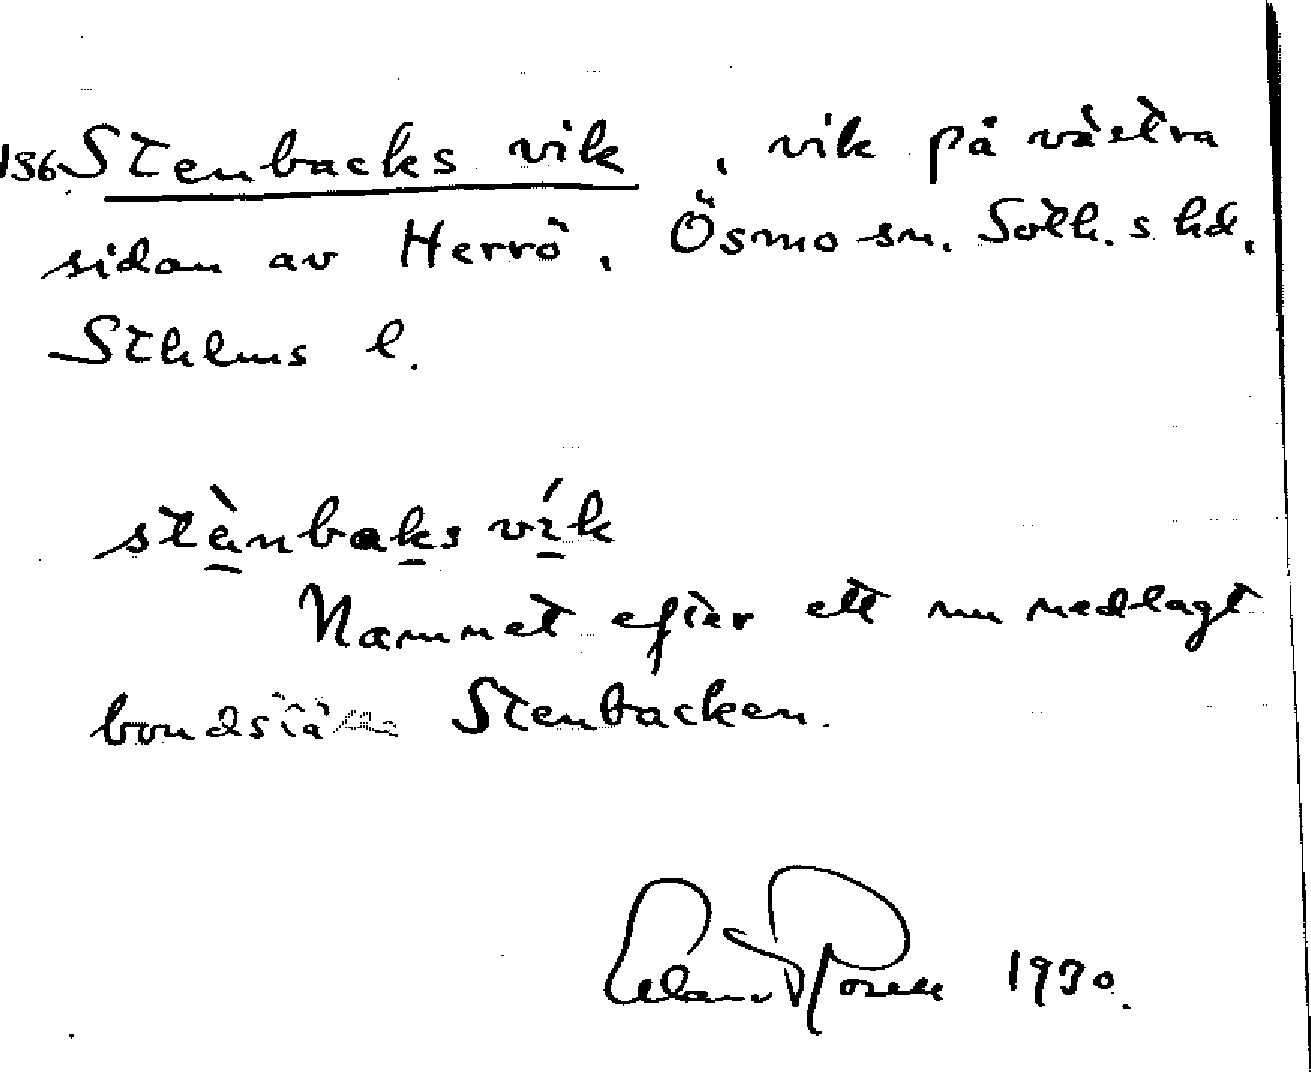 136 Stenbacks vik, vik på västra
sidan av Herrö, Ösmo sn. Soth. s hd,
Sthlms l.
stènbaks vík
Namnet efter ett nu nedlagt
bondställe Stenbacken.
1930.